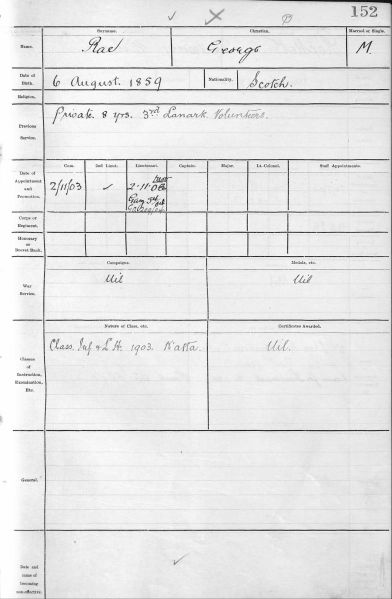 152
Surname. Christian. Married or Single.
Name. Rae George M.
Date of Birth. 6 August. 1859 Nationality. Scotch.
Religion.
Previous Service. Private 8 yrs. 3rd Lanark Volunteers.
Com. 2nd Lieut. Lieutenant. Captain. Major. Lt.-Colonel. Staff Appointments.
Date of Appointment and Promotion. 2/11/03 ✓ 2.11.03
Corps or Regiment.
Honorary or Brevet Rank.
Campaigns. Medals, etc.
War Service. Nil Nil
Nature of Class, etc. Certificates Awarded.
Classes of Instruction, Examination, Etc. Class. Inf & L.H. 1903. Nil.
General.
Date and cause of becoming non-effective.